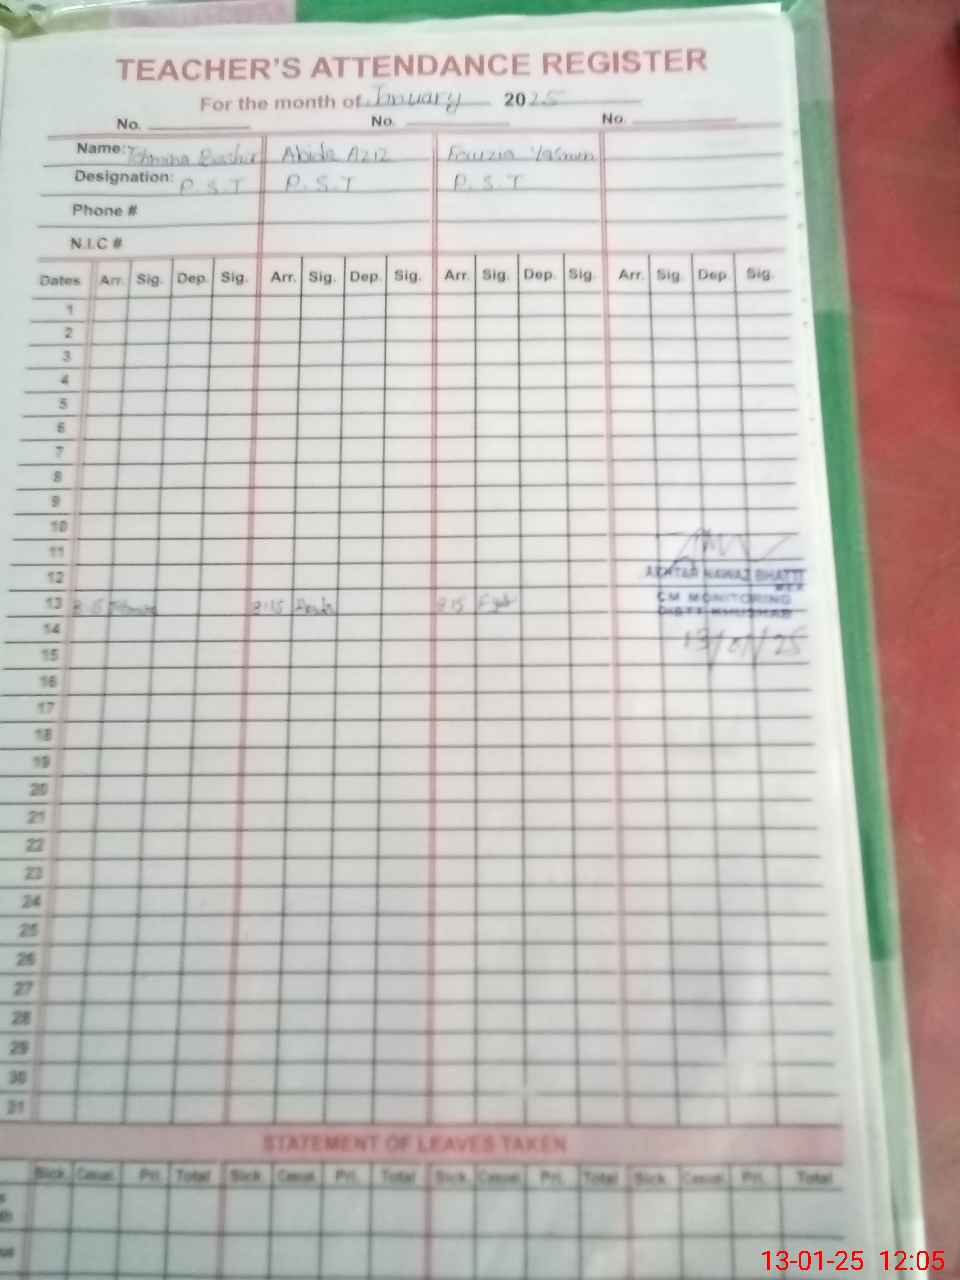 TEACHER'S ATTENDANCE REGISTER
For the month of January 2025
No. No. No.
Name: Tahmina Bashir Abida Aziz Fouzia Yasmin
Designation: P.S.T P.S.T P.S.T
Phone #
N.I.C #
Dates Arr. Sig. Dep. Sig. Arr. Sig. Dep. Sig. Arr. Sig. Dep. Sig. Arr. Sig. Dep. Sig.
1
2
3
4
5
6
7
8
9
10
11
12
AKHTAR NAWAZ BHATTI
MEA
13 8:15 8:15 8:15
CM MONITORING
DISTT KHUSHAB
14
13/01/25
15
16
17
18
19
20
21
22
23
24
25
26
27
28
29
30
31
STATEMENT OF LEAVES TAKEN
Sick Casual Pri. Total Sick Casual Pri. Total Sick Casual Pri. Total Sick Casual Pri. Total
13-01-25 12:05